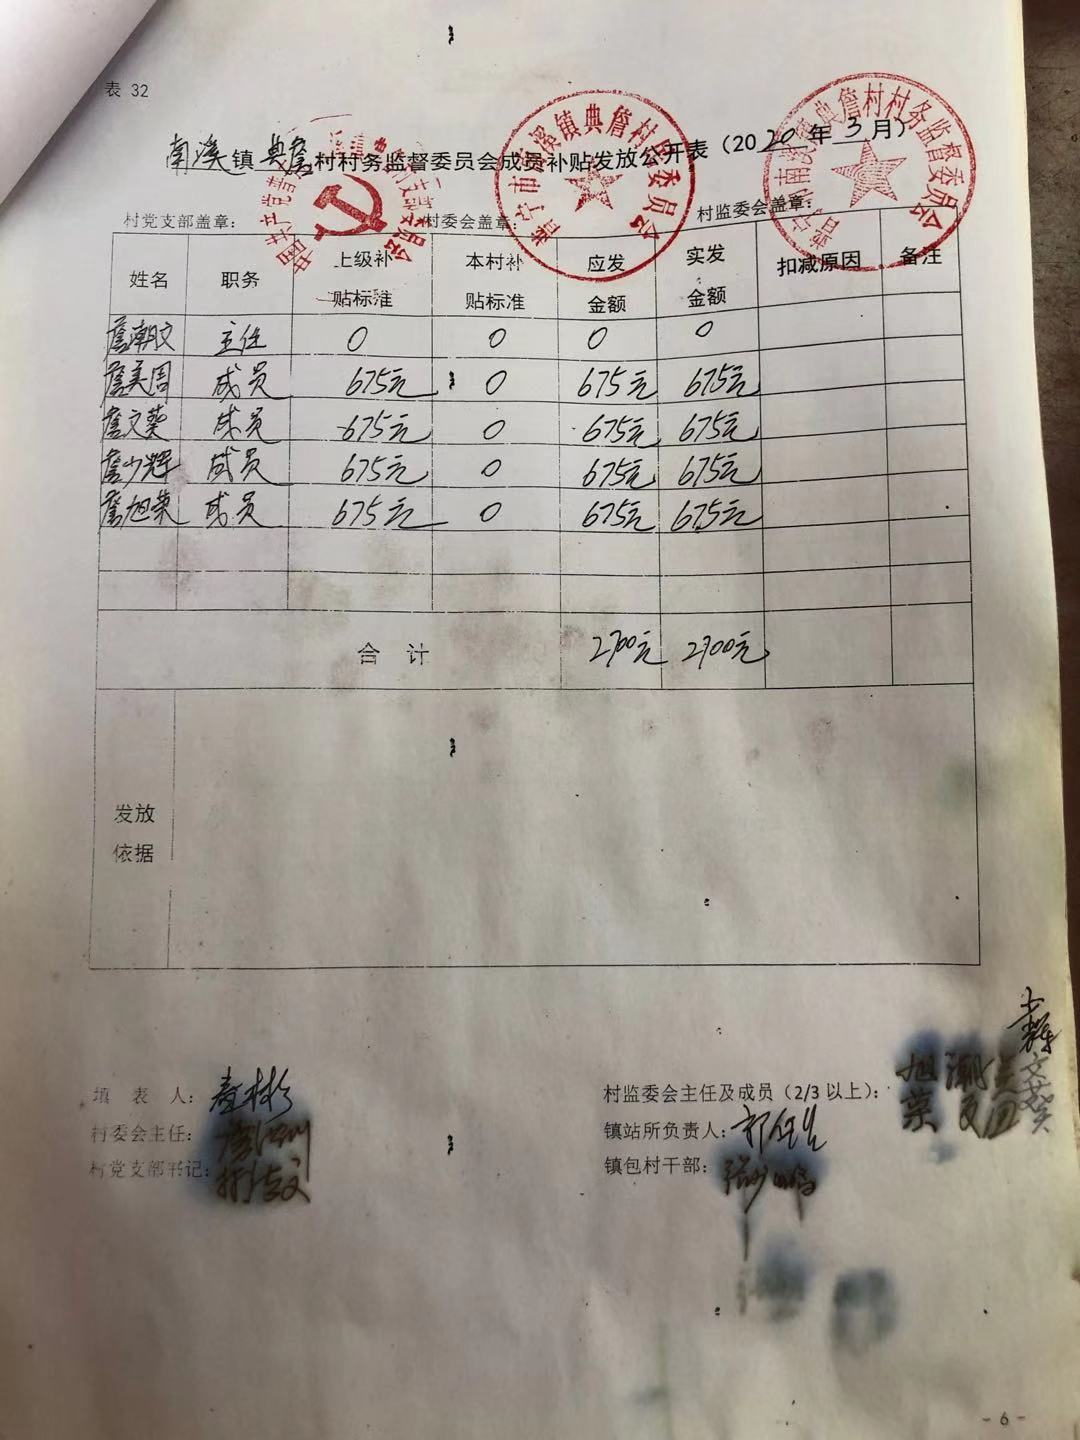 表 32
南溪镇典詹村村务监督委员会成员补贴发放公开表（2020年3月）
村党支部盖章： 村委会盖章： 村监委会盖章：
普宁市南溪镇典詹村村民委员会
普宁市南溪镇典詹村村务监督委员会
姓名 职务 上级补贴标准 本村补贴标准 应发金额 实发金额 扣减原因 备注
詹潮文 主任 0 0 0 0
詹美周 成员 675元 0 675元 675元
詹文葵 成员 675元 0 675元 675元
詹少辉 成员 675元 0 675元 675元
詹旭荣 成员 675元 0 675元 675元
合 计 2700元 2700元
发放
依据
填 表 人：
村委会主任：
村党支部书记：
村监委会主任及成员（2/3 以上）： 旭荣 潮文 文葵
镇站所负责人：
镇包村干部：
- 6 -